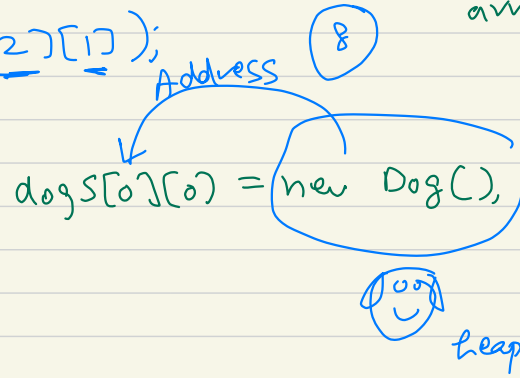 an
2][1]);
8
Address
dogs[0][0) = new Dog(),
heap